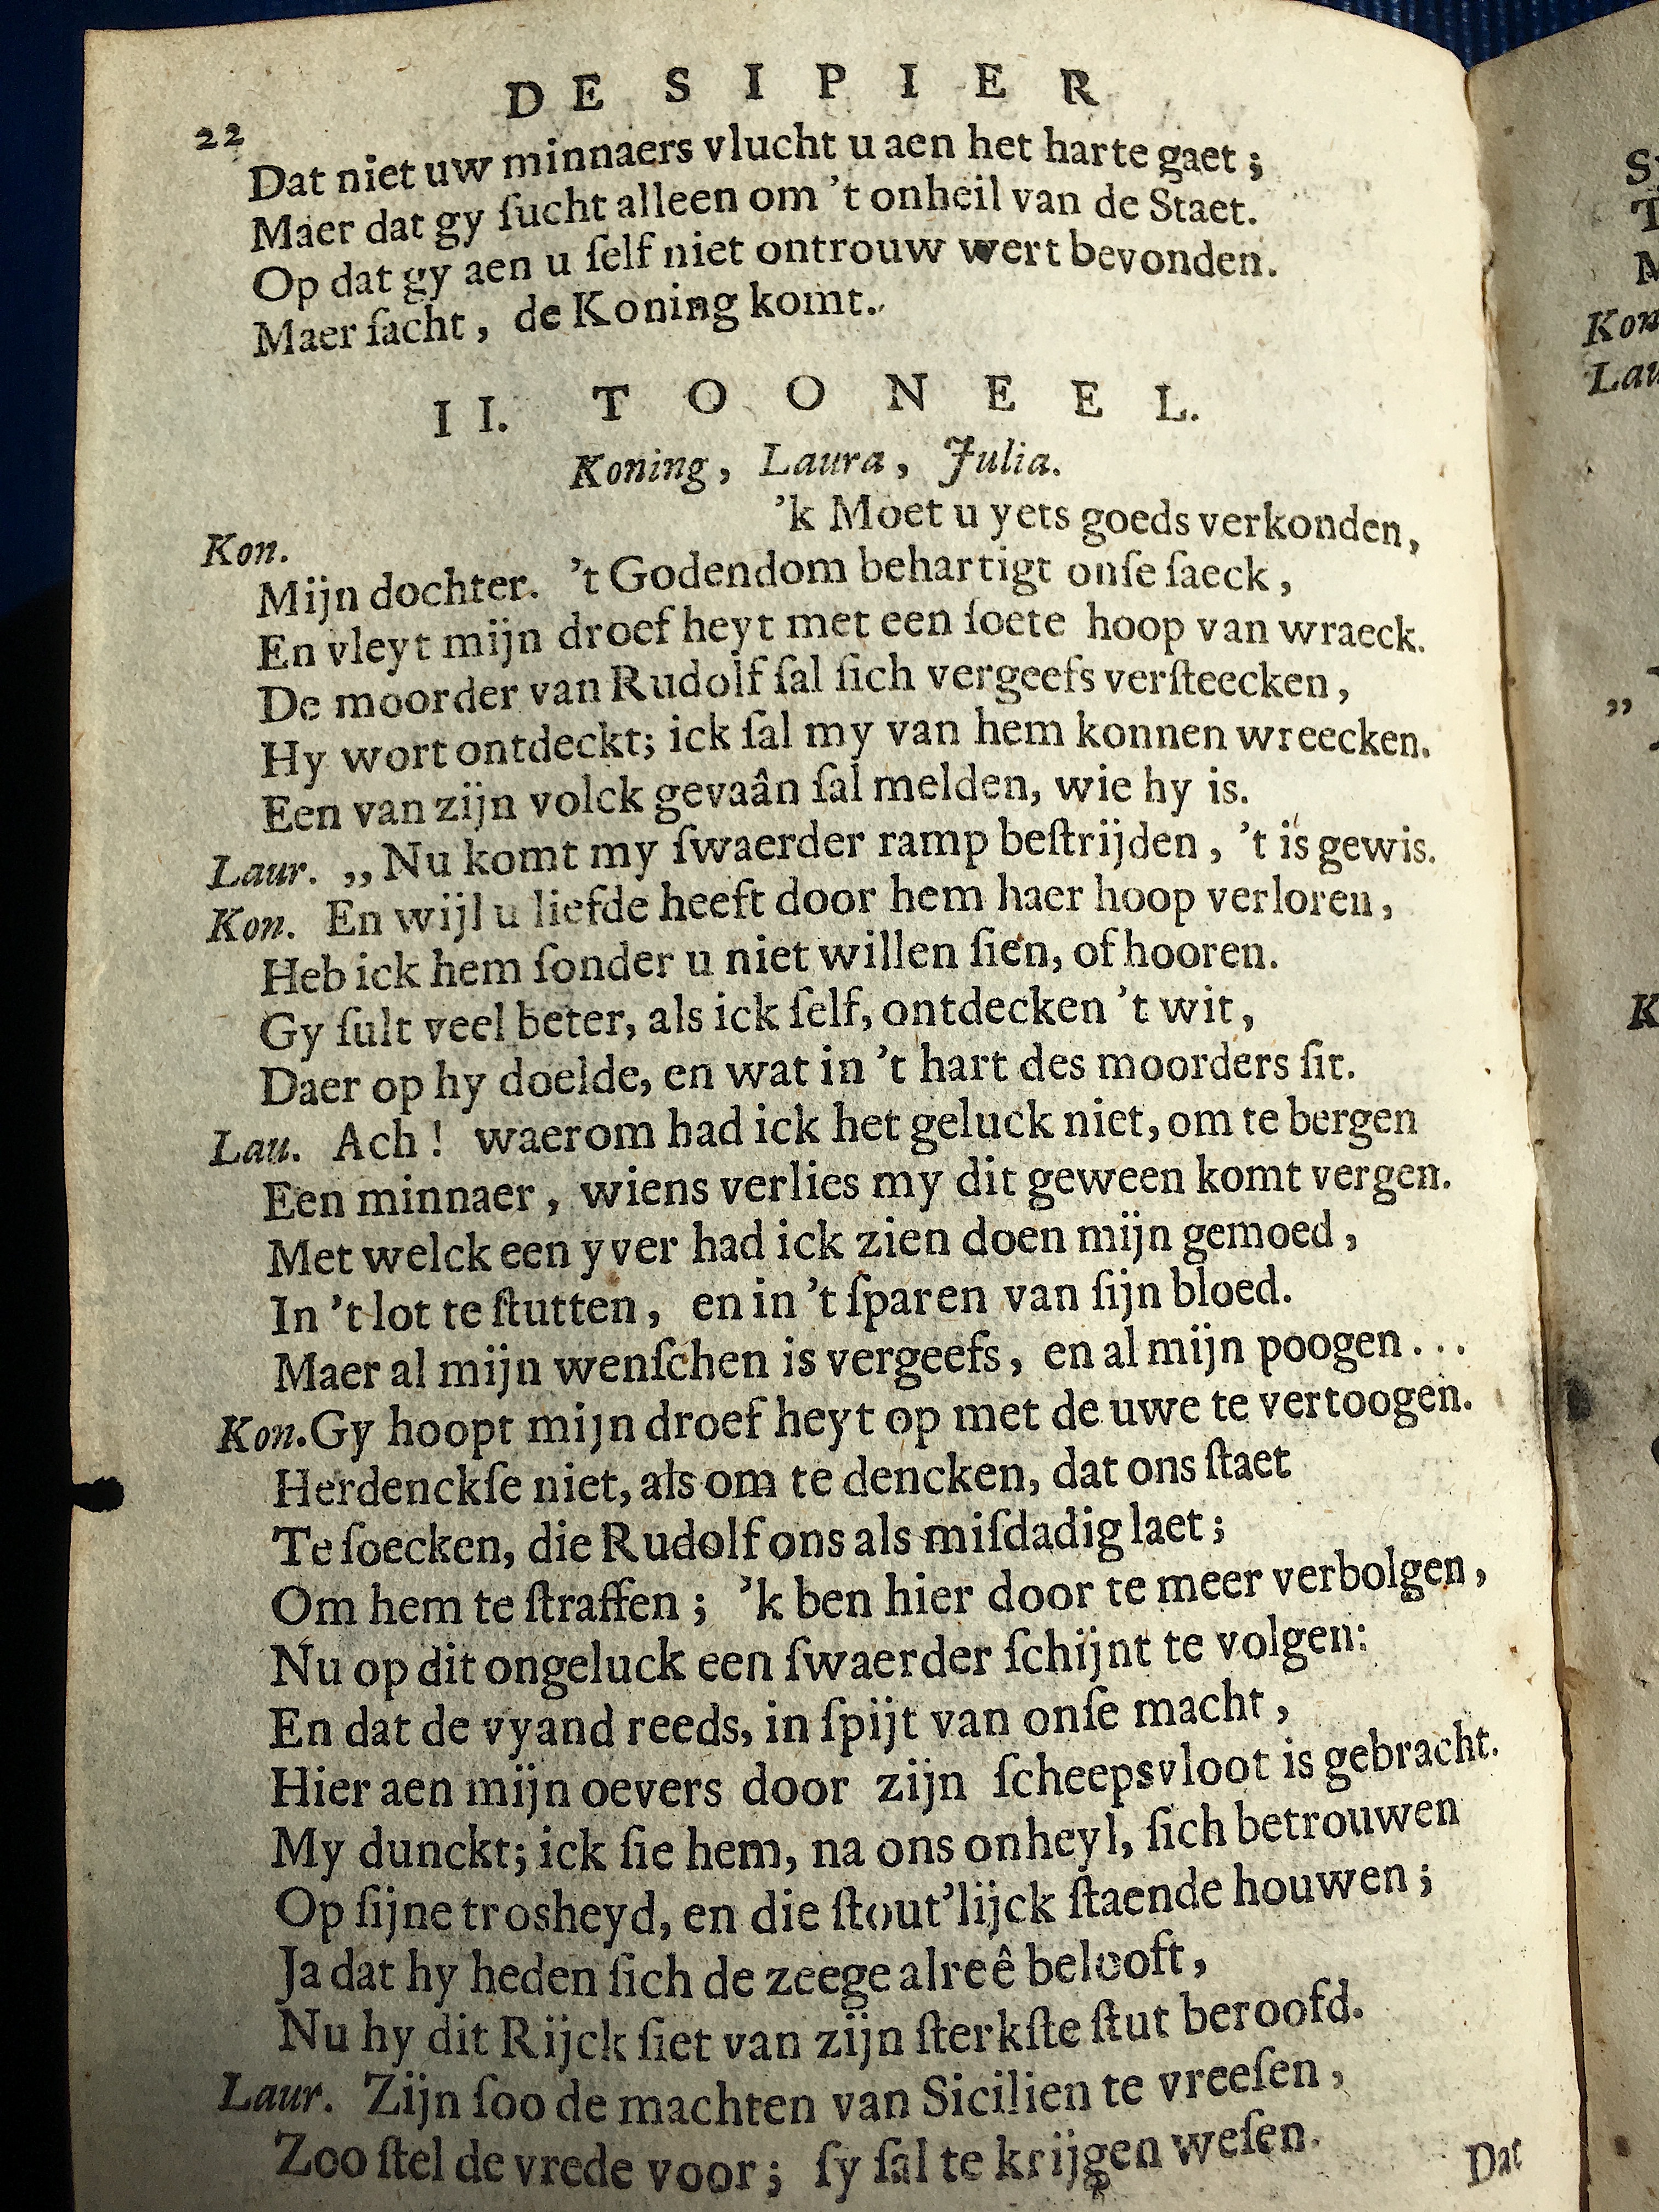 DE SIPIER
22
Dat niet uw minnaers vlucht u aen het harte gaet;
Maer dat gy ſucht alleen om 't onheil van de Staet.
Op dat gy aen u ſelf niet ontrouw wert bevonden.
Maer ſacht, de Koning komt.
II. TOONEEL.
Koning, Laura, Julia.
Kon. 'k Moet u yets goeds verkonden,
Mijn dochter. 't Godendom behartigt onſe ſaeck,
En vleyt mijn droefheyt met een ſoete hoop van wraeck.
De moorder van Rudolf ſal ſich vergeefs verſteecken,
Hy wort ontdeckt; ick ſal my van hem konnen wreecken.
Een van zijn volck gevaân ſal melden, wie hy is.
Laur. „Nu komt my ſwaerder ramp beſtrijden, 't is gewis.
Kon. En wijl u liefde heeft door hem haer hoop verloren,
Heb ick hem ſonder u niet willen ſien, of hooren.
Gy ſult veel beter, als ick ſelf, ontdecken 't wit,
Daer op hy doelde, en wat in 't hart des moorders ſit.
Lau. Ach! waerom had ick het geluck niet, om te bergen
Een minnaer, wiens verlies my dit geween komt vergen.
Met welck een yver had ick zien doen mijn gemoed,
In 't lot te ſtutten, en in 't ſparen van ſijn bloed.
Maer al mijn wenſchen is vergeefs, en al mijn poogen...
Kon. Gy hoopt mijn droefheyt op met de uwe te vertoogen.
Herdenckſe niet, als om te dencken, dat ons ſtaet
Te ſoecken, die Rudolf ons als miſdadig laet;
Om hem te ſtraffen; 'k ben hier door te meer verbolgen,
Nu op dit ongeluck een ſwaerder ſchijnt te volgen:
En dat de vyand reeds, in ſpijt van onſe macht,
Hier aen mijn oevers door zijn ſcheepsvloot is gebracht.
My dunckt; ick ſie hem, na ons onheyl, ſich betrouwen
Op ſijne trosheyd, en die ſtout'lijck ſtaende houwen;
Ja dat hy heden ſich de zeege alreê belooft,
Nu hy dit Rijck ſiet van zijn ſterkſte ſtut beroofd.
Laur. Zijn ſoo de machten van Sicilien te vreeſen,
Zoo ſtel de vrede voor; ſy ſal te krijgen weſen.
Dat
Kon
Lau
„
K